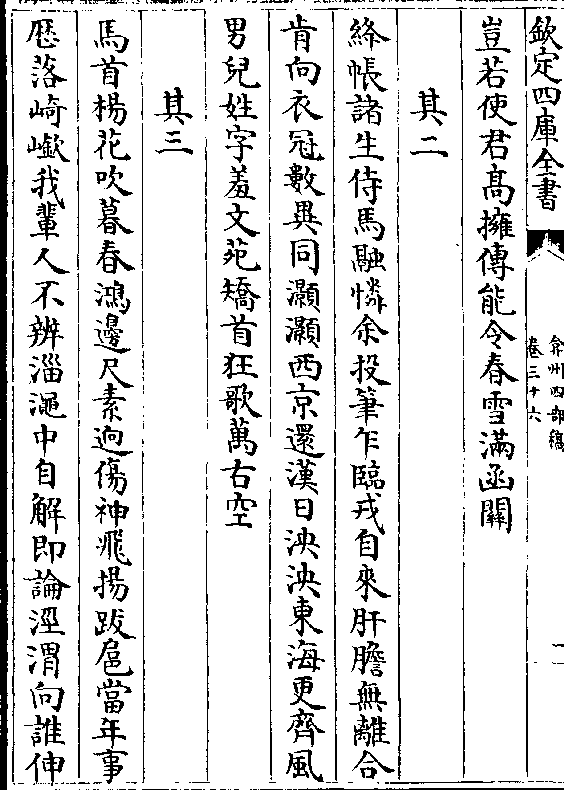 欽定四庫全書
弇州四部稿
卷三十六
一
豈若使君髙擁傳能令春雪滿函關
其二
絳帳諸生侍馬融憐余投筆乍臨戎自來肝膽無離合
肯向衣冠數異同灝灝西京還漢日泱泱東海更齊風
男兒姓字羞文苑矯首狂歌萬古空
其三
馬首楊花吹暮春鴻邊尺素逈傷神飛揚跋扈當年事
歴落崎嶔我輩人不辨淄澠中自解即論涇渭向誰伸